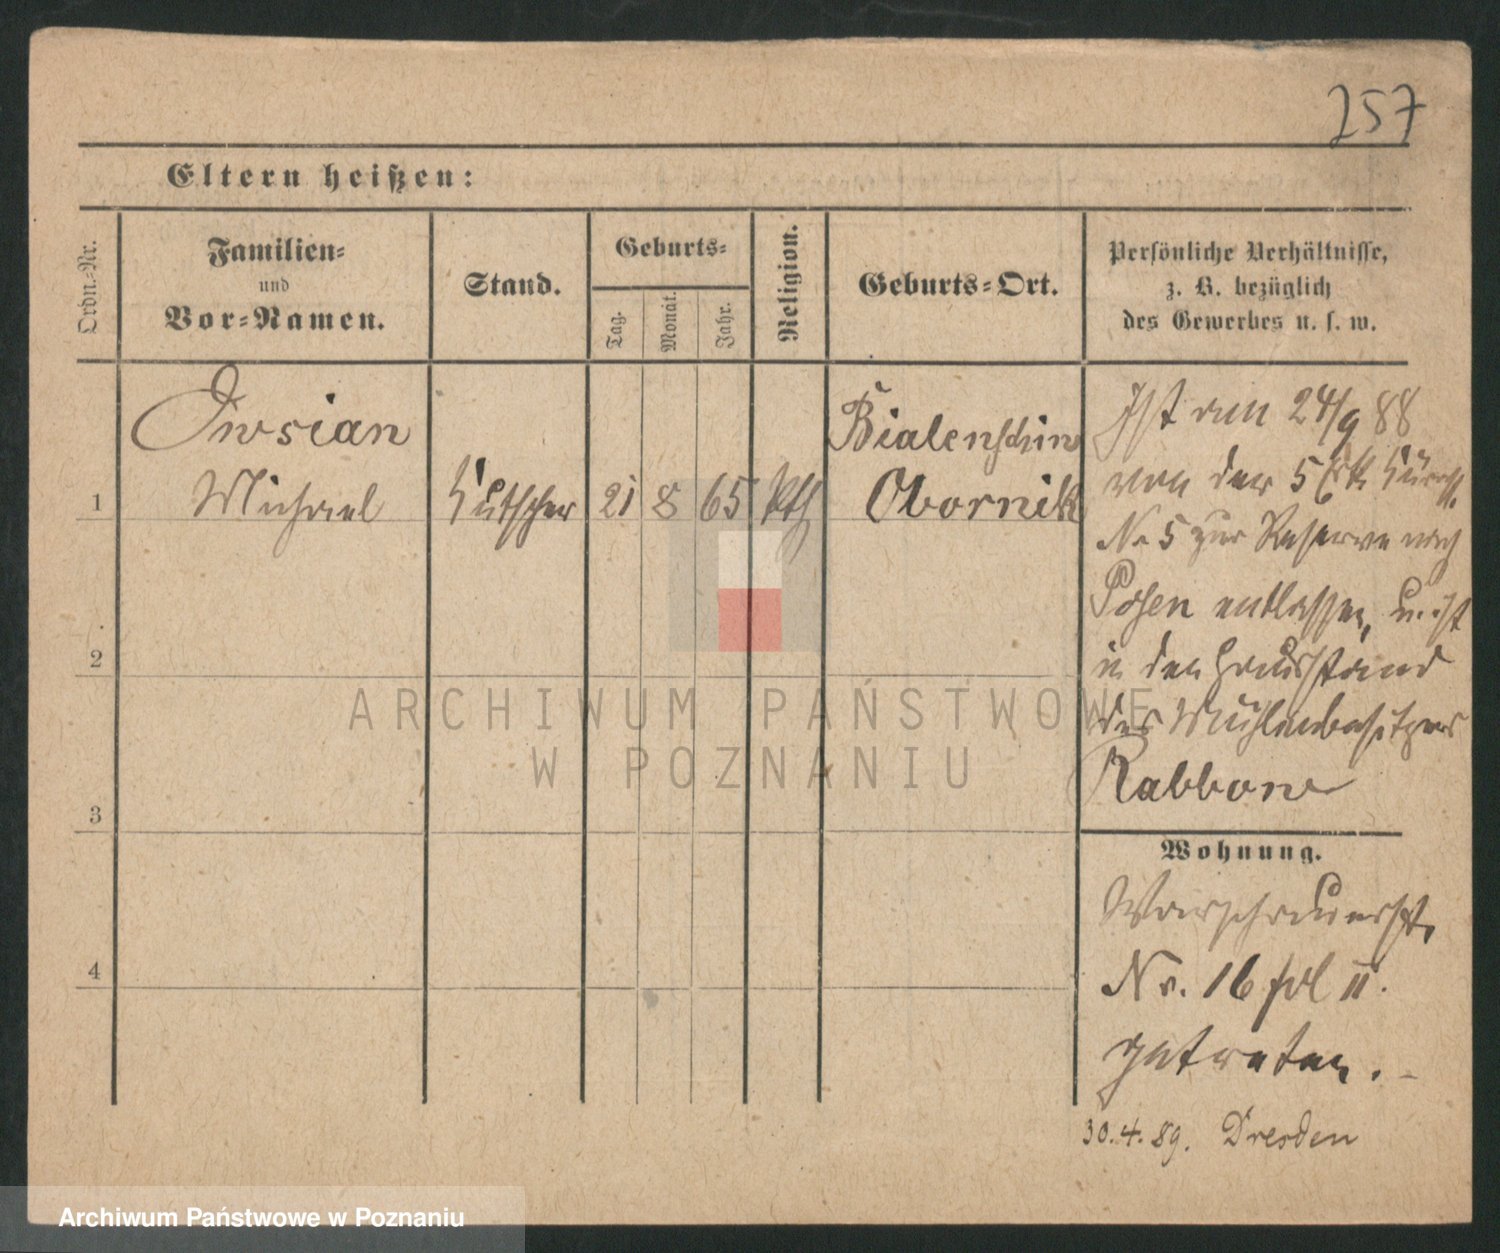 257
Eltern heißen:
Ordn.-Nr.
Familien-
und
Vor-Namen.
Stand.
Geburts-
Tag.
Monat.
Jahr.
Religion.
Geburts-Ort.
Persönliche Verhältnisse,
z. B. bezüglich
des Gewerbes u. s. w.
Owsian
Michael
1
Kutscher
21
8
65
Kth
Bialenschin
Obornik
Ist am 24/9 88
von der 5
No 5 zur Reserve nach
Posen entlassen, u. ist
in den Hausstand
des Mühlenbesitzers
Rabbow
2
3
4
Wohnung.
Warschauerst.
Nr. 16 fol II.
getreten.
30.4.89. Dresden
ARCHIWUM PAŃSTWOWE
W POZNANIU
Archiwum Państwowe w Poznaniu